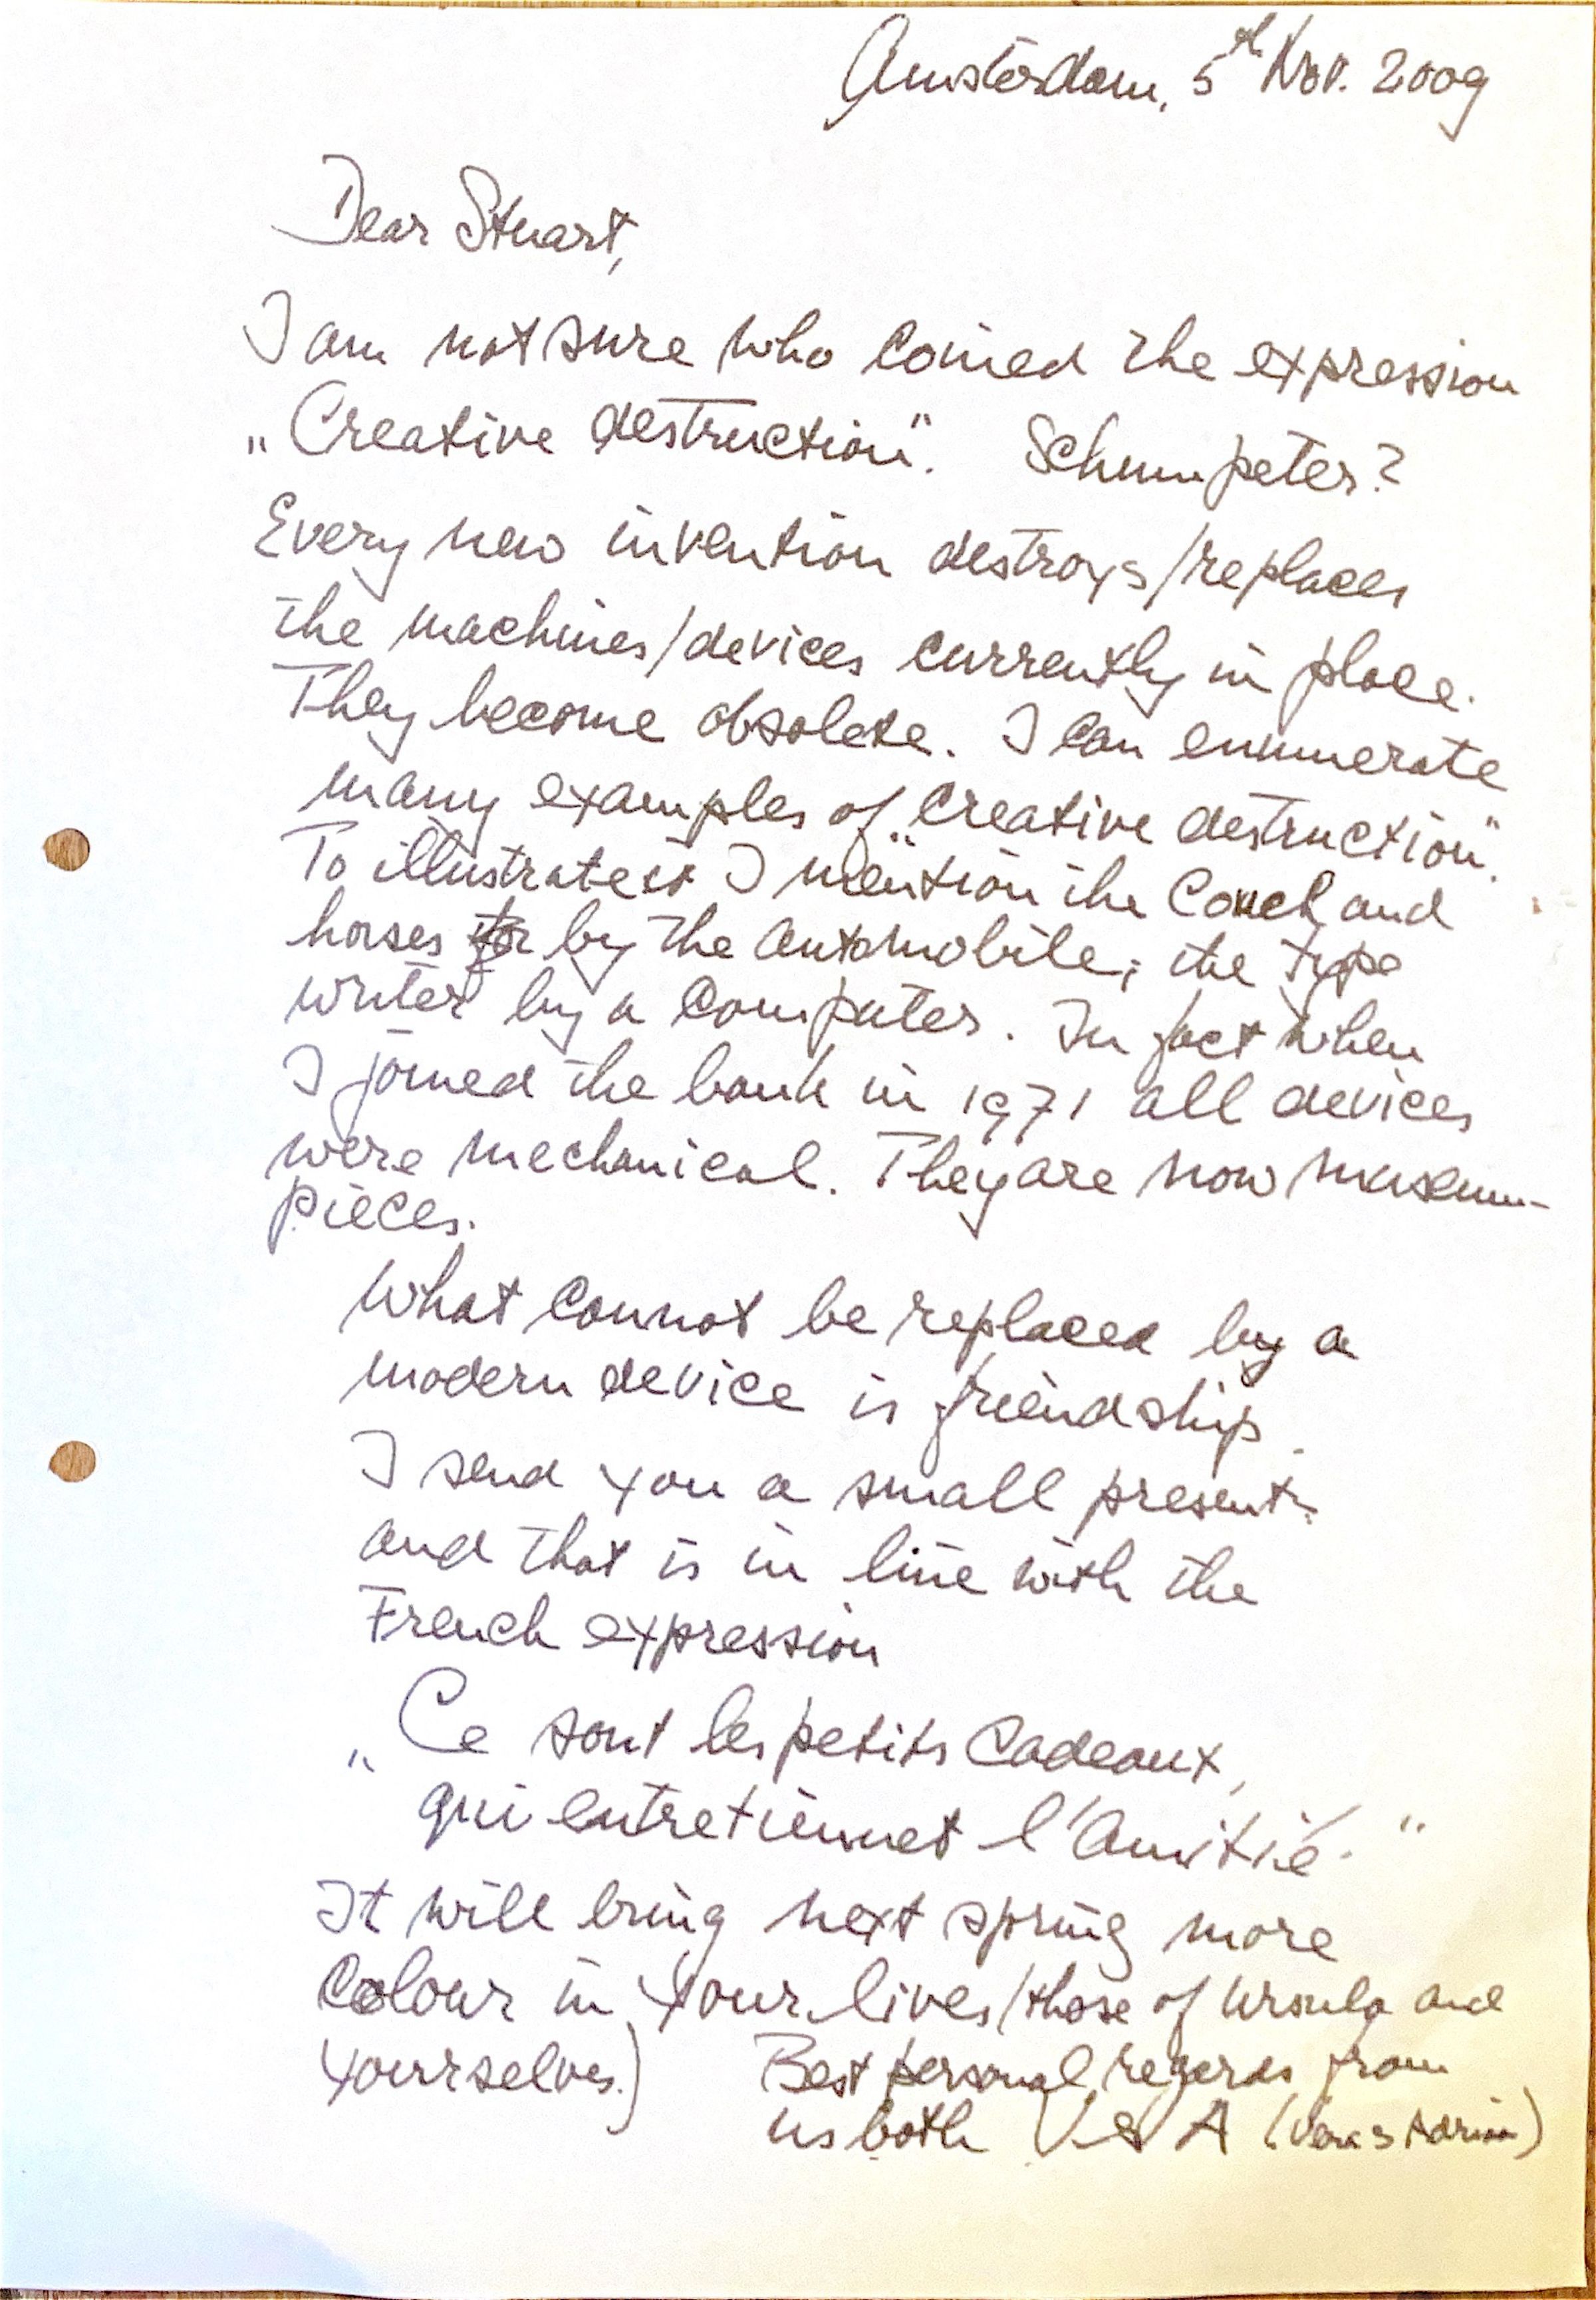 Amsterdam, 5th Nov. 2009
Dear Stuart,
I am not sure who coined the expression
„Creative destruction". Schumpeter?
Every new invention destroys/replaces
the machines/devices currently in place.
They become obsolete. I can enumerate
many examples of „Creative destruction".
To illustrate it I mention the Coach and
horses by the automobile; the type
writer by a computer. In fact when
I joined the bank in 1971 all devices
were mechanical. They are now museum-
pieces.
What cannot be replaced by a
modern device is friendship.
I send you a small present
and that is in line with the
French expression
„Ce sont les petits Cadeaux,
qui entretiennet l'Amitié."
It will bring next spring more
Colour in your lives (those of Ursula and
yourrselves.) Best personal regards from
us both V & A (Vera & Adriaan)